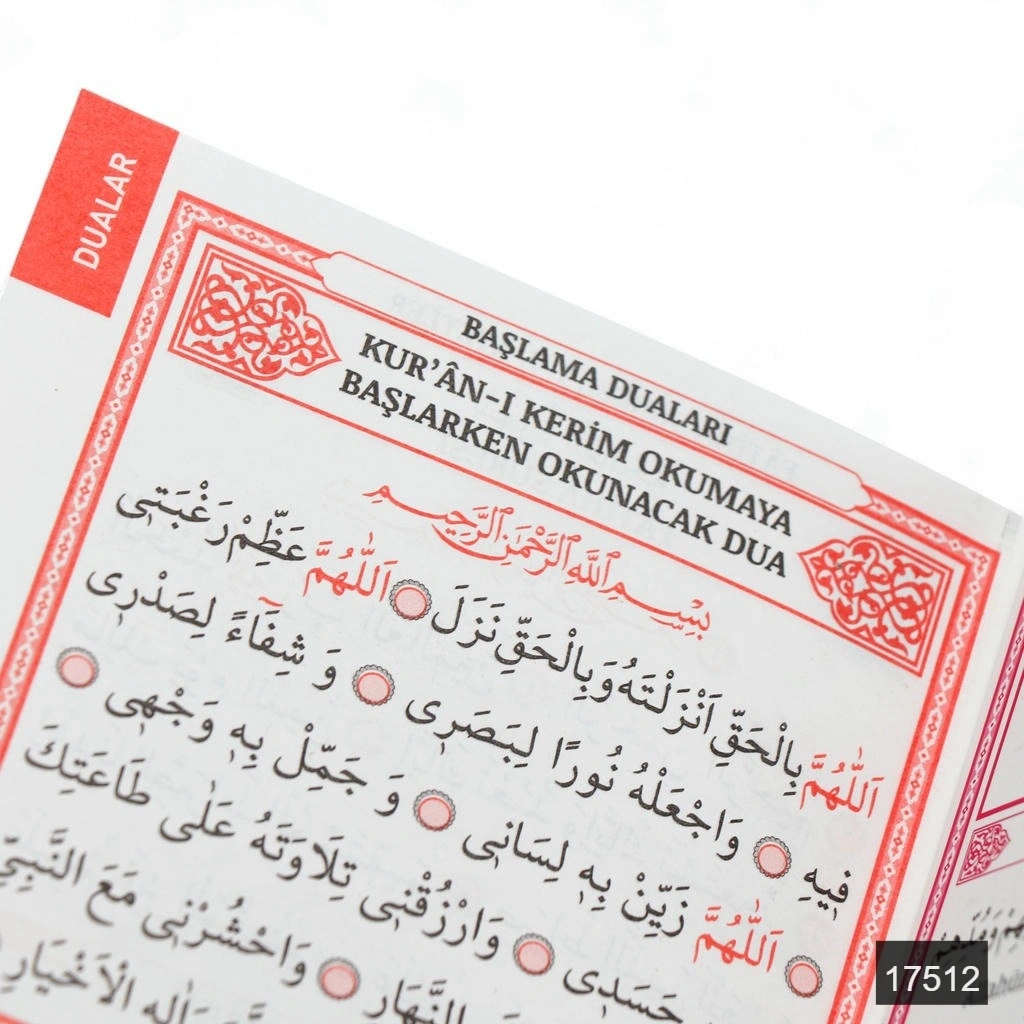 DUALAR
BAŞLAMA DUALARI
KUR'ÂN-I KERİM OKUMAYA
BAŞLARKEN OKUNACAK DUA
بِسْمِ اللّٰهِ الرَّحْمٰنِ الرَّحِيمِ
اَللّٰهُمَّ بِالْحَقِّ اَنْزَلْتَهُ وَبِالْحَقِّ نَزَلَ اَللّٰهُمَّ عَظِّمْ رَغْبَتِى
فِيهِ وَاجْعَلْهُ نُورًا لِبَصَرِى وَ شِفَآءً لِصَدْرِى
اَللّٰهُمَّ زَيِّنْ بِهِ لِسَانِى وَ جَمِّلْ بِهِ وَجْهِى
حَسَدِى وَارْزُقْنِى تِلَاوَتَهُ عَلٰى طَاعَتِكَ
النَّهَارِ وَاحْشُرْنِى مَعَ النَّبِيِّ
وَاٰلِهِ الْاَخْيَارِ
17512